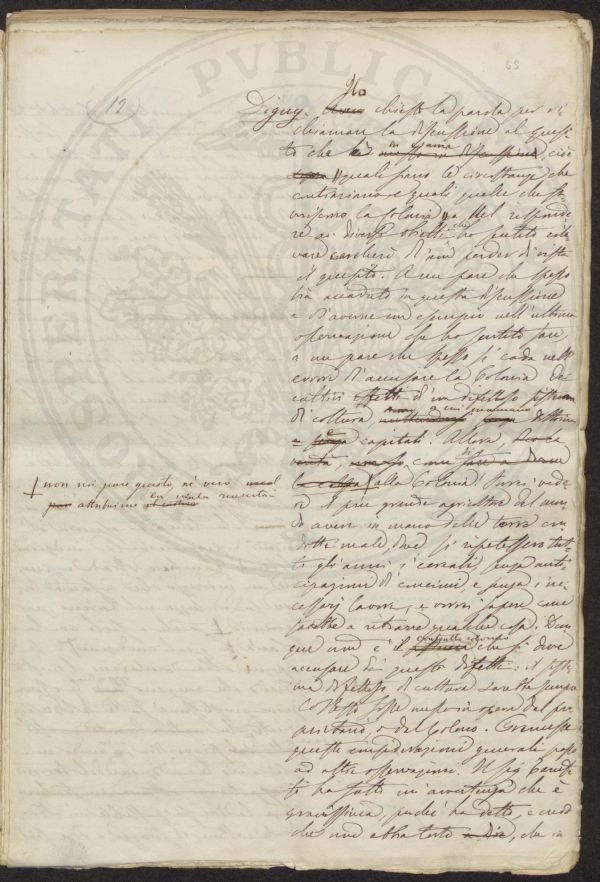 12
Ho
Digny. Avea chiesto la parola per ri
chiamare la discussione al quesi
to che è in esame, cioè
quali siano le circostanze che
contrariano e quali quelle che fa
voriscono la Colonia. Nel risponde
re ai diversi obietti che ho sentito sole
vare cercherò di non perder di vista
il quesito. A me pare che spesso
sia accaduto in questa discussione
e di averne un esempio nell'ultima
osservazione che ho sentito fare
a me pare che spesso si cada nell'
errore d'accusare la Colonia dei
cattivi effetti d'un difettoso sistema
di coltura,
capitali. Allora,
alla Colonia. Vorrei vede
re il più grande agricoltore del mon
do avere in mano delle terre con
dotte male, dove si ripetessero tut
ti gli anni i cereali, senza anti
cipazioni di concimi, e senza i ne
cessarj lavori, e vorrei sapere come
farebbe a ritrarre qualche cosa. Dun
que non è il che si deve
accusare di questi difetti: il siste
ma difettoso di cultura sarebbe sempre
lo stesso fosse messo in opera dal pro
prietario, o dal Colono. Premesse
queste considerazioni generali passo
ad altre osservazioni. Il Sig.
ha fatto un'avvertenza che è
gravissima, perché ha detto, e credo
che non abbia torto a dire, che in
non mi pare giusto, né vero
attribuirne